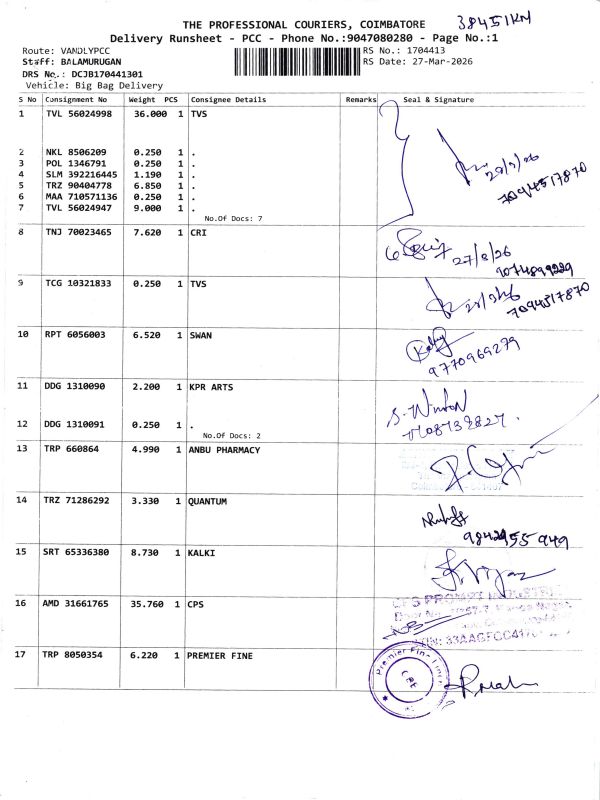 THE PROFESSIONAL COURIERS, COIMBATORE
38451KM
Delivery Runsheet - PCC - Phone No.:9047080280 - Page No.:1
Route: VANDLYPCC
RS No.: 1704413
Staff: BALAMURUGAN
RS Date: 27-Mar-2026
DRS No.: DCJB170441301
Vehicle: Big Bag Delivery
S No Consignment No Weight PCS Consignee Details Remarks Seal & Signature
1 TVL 56024998 36.000 1 TVS
2 NKL 8506209 0.250 1 .
3 POL 1346791 0.250 1 .
4 SLM 392216445 1.190 1 .
5 TRZ 90404778 6.850 1 .
6 MAA 710571136 0.250 1 .
7 TVL 56024947 9.000 1 .
7094517870
No.Of Docs: 7
8 TNJ 70023465 7.620 1 CRI
27/3/26
9 TCG 10321833 0.250 1 TVS
7094517870
10 RPT 6056003 6.520 1 SWAN
9770969279
11 DDG 1310090 2.200 1 KPR ARTS
12 DDG 1310091 0.250 1 .
No.Of Docs: 2
13 TRP 660864 4.990 1 ANBU PHARMACY
14 TRZ 71286292 3.330 1 QUANTUM
15 SRT 65336380 8.730 1 KALKI
16 AMD 31661765 35.760 1 CPS
17 TRP 8050354 6.220 1 PREMIER FINE